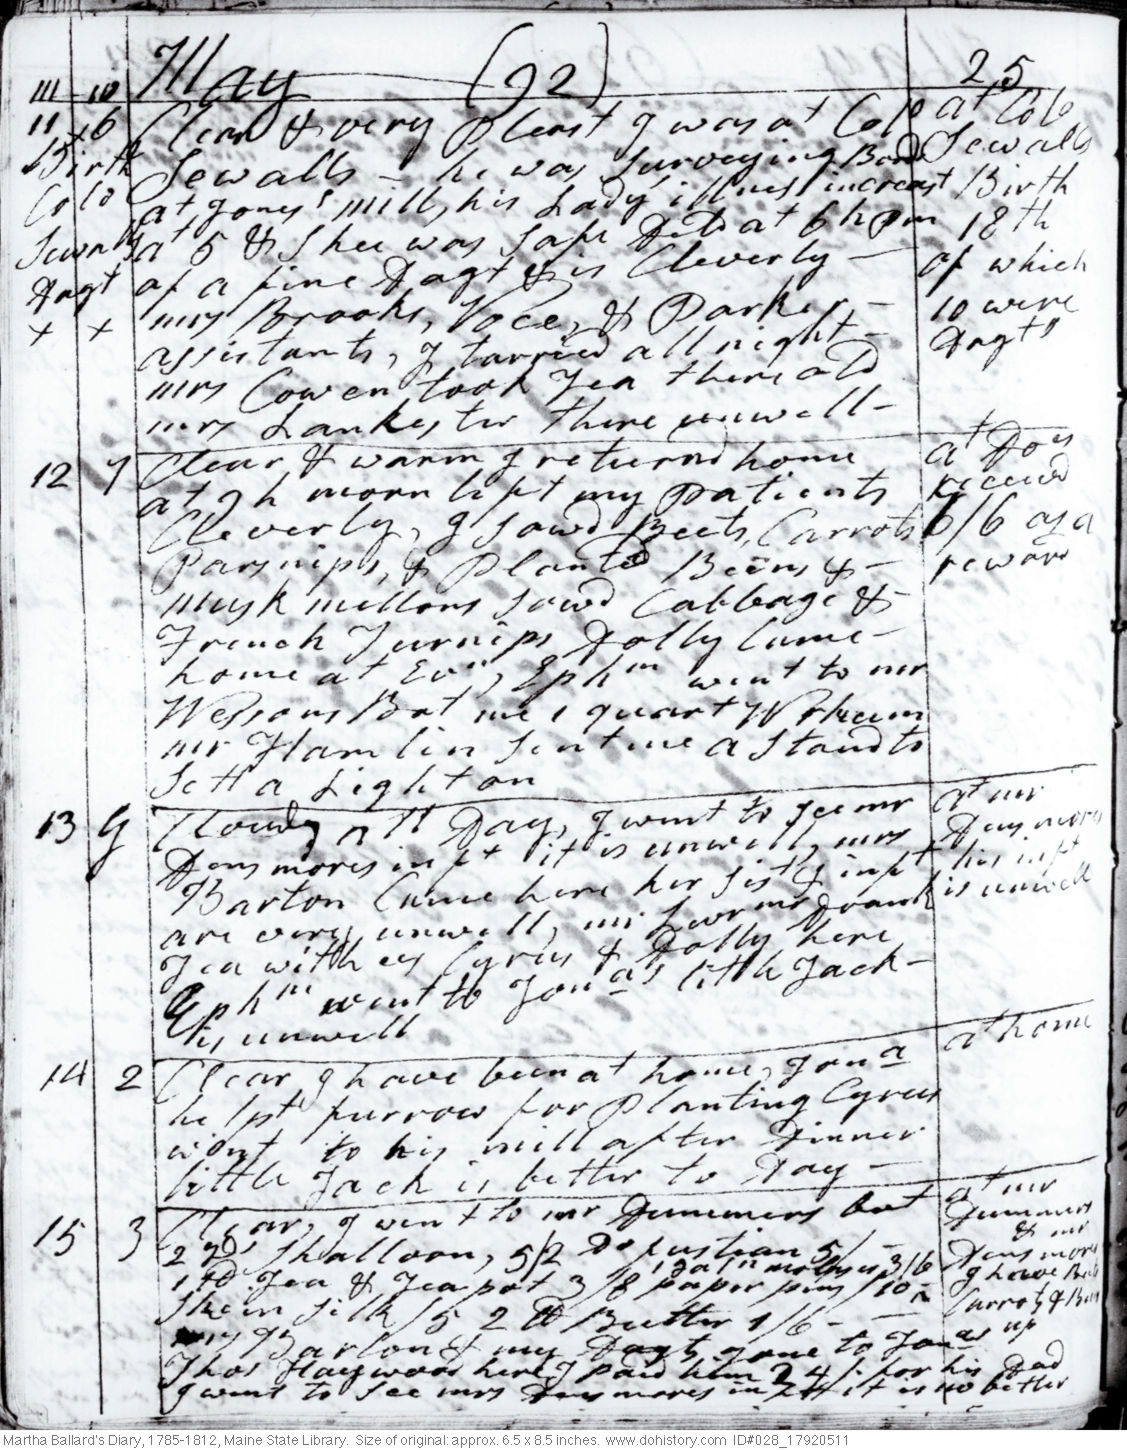 May (92) 25
11 6 Clear & very Pleast I was at Colo at Colo
Birth Sewalls - he was Surveying Sewalls
Colo at Jones's mill, his Lady illness increast Birth
Sewalls at 5 & Shee was safe Delvd at 6 h pm 18th
Dagt of a fine Dagt & is Cleverly - of which
x x mrs Brooks, Voce, & Parker - 10 were
assistants, I tarried all night - Dagts
mrs Cowen took Tea there old
mrs Lankester there unwell -
12 7 Clear & warm I returnd home at Dos
at 9 h morn left my Patients receivd
Cleverly, I sowd Beets, Carrots 6/6 as a
Parsnips, & Planted Beens & - reward
Musk mellons sowd Cabbage &
French Turnips Dolly Came -
home at Evn, Ephm went to mr
Wessons Bot me 1 quart W Rheum
mr Hamlin sent me a Stand to
sett a Light on
13 G Cloudy all Day, I went to see mr at mr
Densmores inft it is unwell, mrs Densmores
Barton Came here her sist & inft his inft
are very unwell, mr & mrs Drank is unwell
Tea with us Cyrus & Dolly here
Ephm went to Jonas little Jack -
is unwell
14 2 Clear, I have been at home, Jona at home
helpt furrow for Planting Cyrus
went to his mill after Dinner
little Jack is better to Day -
15 3 Clear, I went to mr Dummers bot at mr
2 yds Shalloon, 5/2 Do fustian 5/ - Dummers
& mr
1 lb Tea & Teapot 3/8 paper pins /10 Densmores
1 galn molases 3/6 I have Beets
Skein silk /5 2 lb Butter 1/6 - Carrots &
mrs Barton & my Dagts gone to Jonas up
Thos Haywood here I paid him 24/ for his Dad
I went to see mrs Densmores inft it is no better
Martha Ballard's Diary, 1785-1812, Maine State Library. Size of original: approx. 6.5 x 8.5 inches. www.dohistory.com ID#028_17920511